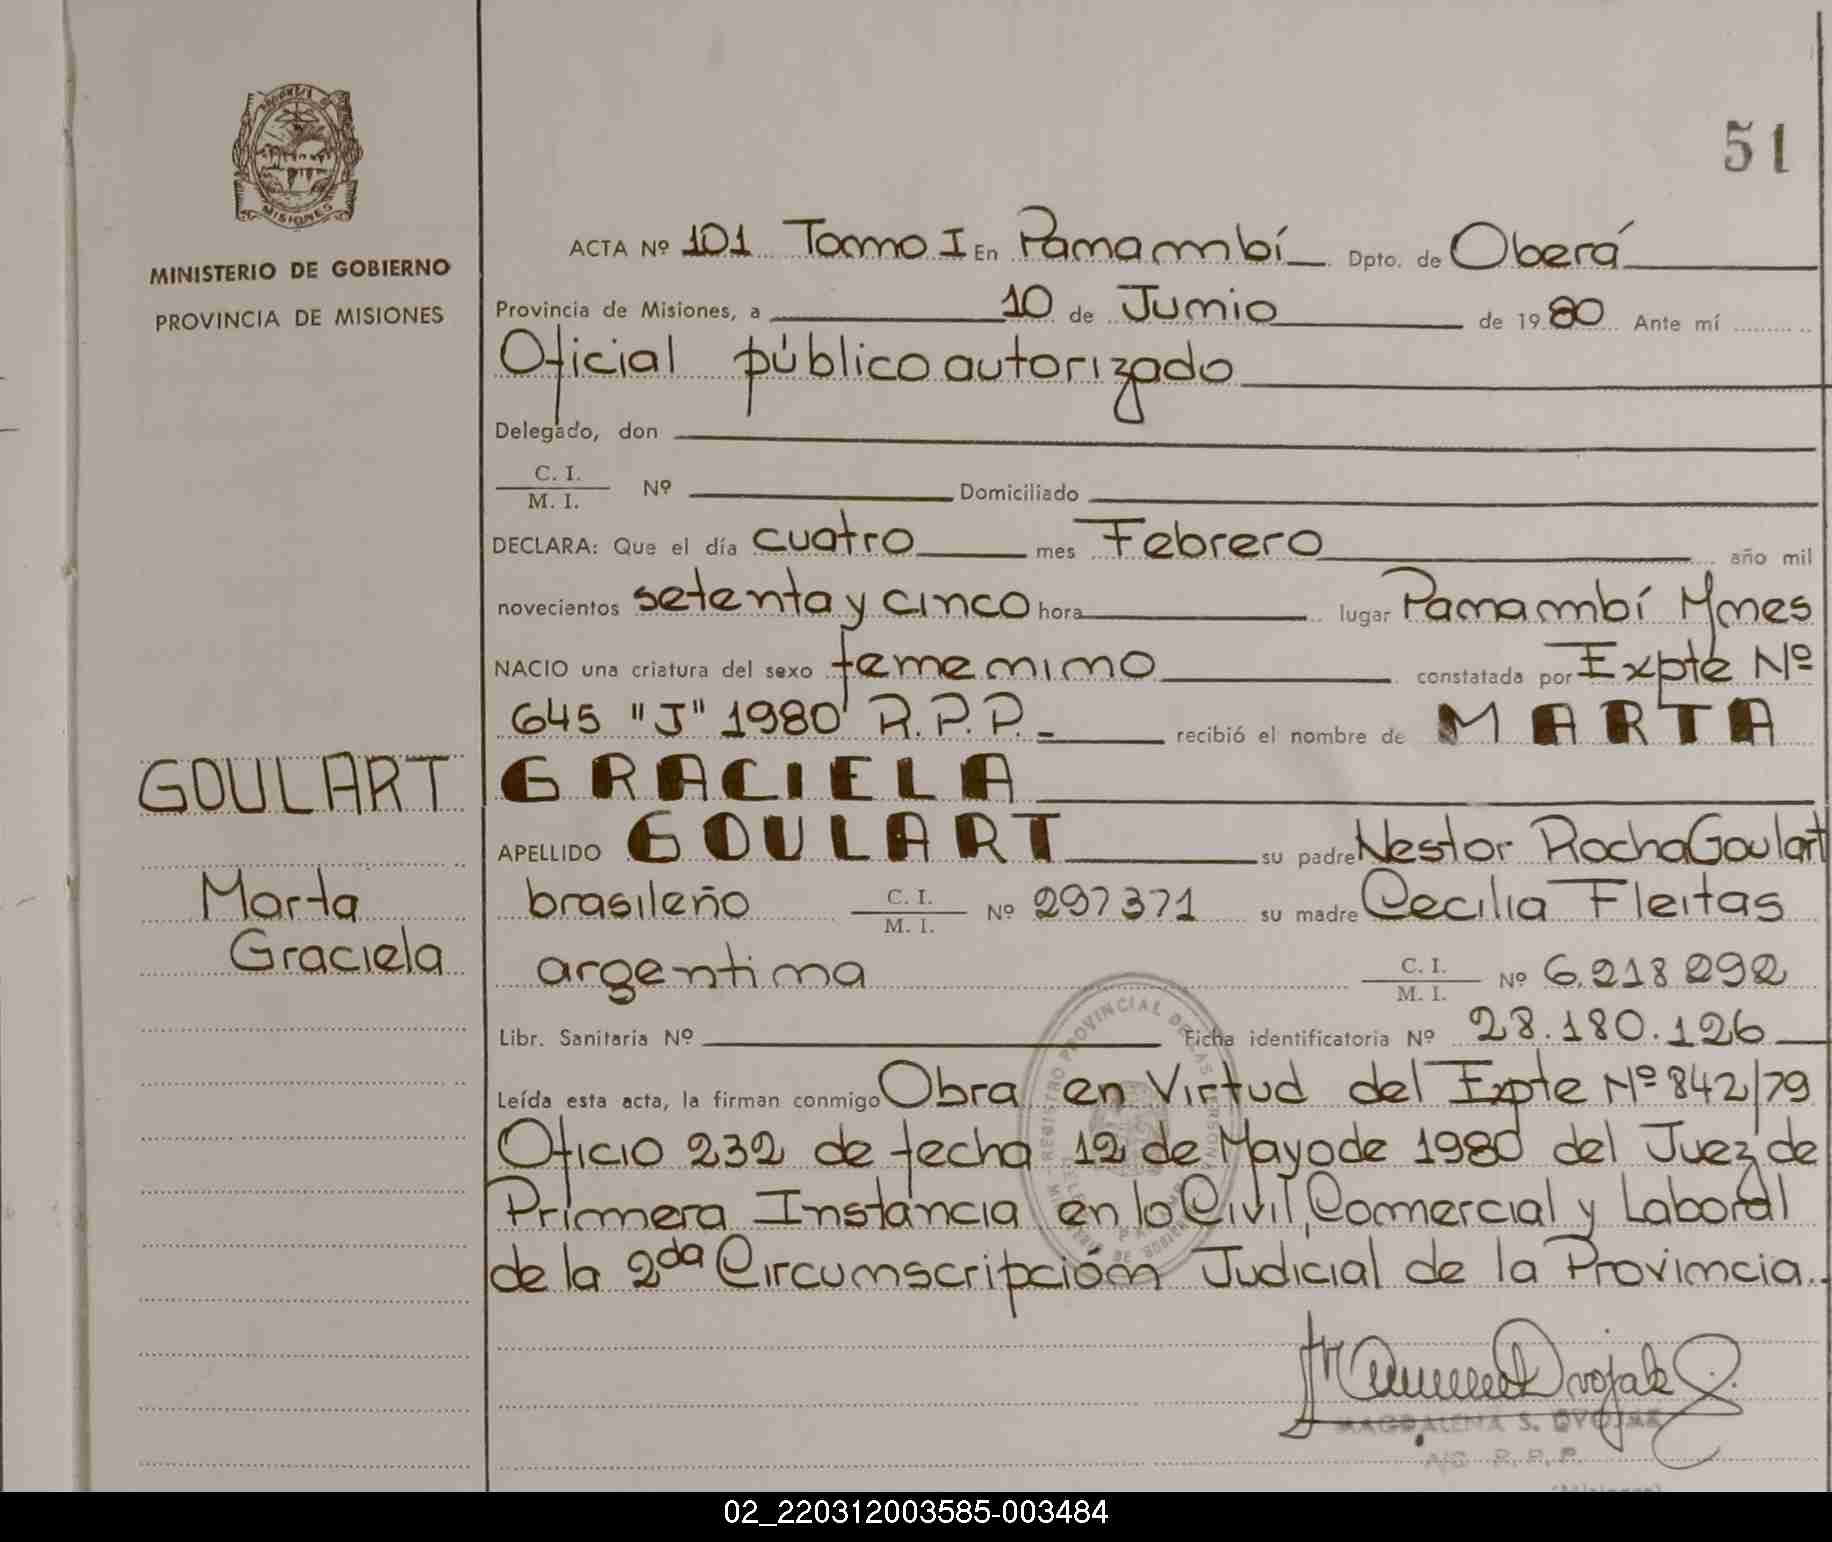 51
MISIONES
MINISTERIO DE GOBIERNO
PROVINCIA DE MISIONES
ACTA Nº 101 Tomo I En Panambí Dpto. de Oberá
Provincia de Misiones, a 10 de Junio de 1980 Ante mí
Oficial público autorizado
Delegado, don
C. I.
M. I. Nº Domiciliado
DECLARA: Que el día cuatro mes Febrero año mil
novecientos setenta y cinco hora lugar Panambí Mnes
NACIO una criatura del sexo femenino constatada por Expte Nº
645 "J" 1980 R.P.P. recibió el nombre de MARTA
GRACIELA
GOULART
APELLIDO GOULART su padre Nestor Rocha Goulart
Marta
brasileño C. I. M. I. Nº 297371 su madre Cecilia Fleitas
Graciela
argentina C. I. M. I. Nº 6.218292
Libr. Sanitaria Nº Ficha identificatoria Nº 28.180.126
Leída esta acta, la firman conmigo Obra en Virtud del Expte Nº 842/79
Oficio 232 de fecha 12 de Mayo de 1980 del Juez de
Primera Instancia en lo Civil, Comercial y Laboral
de la 2da Circunscripción Judicial de la Provincia.
REGISTRO PROVINCIAL DE LAS PERSONAS
Dvojak
MAGDALENA S. DVOJAK
A/C R.P.P.
02_220312003585-003484